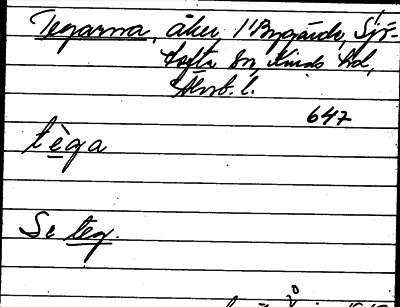 Tegarna, åker, i Bygärde, Sjö-
tofta sn, Kinds hd,
Älvsb. l.
647
tèga
Se teg.